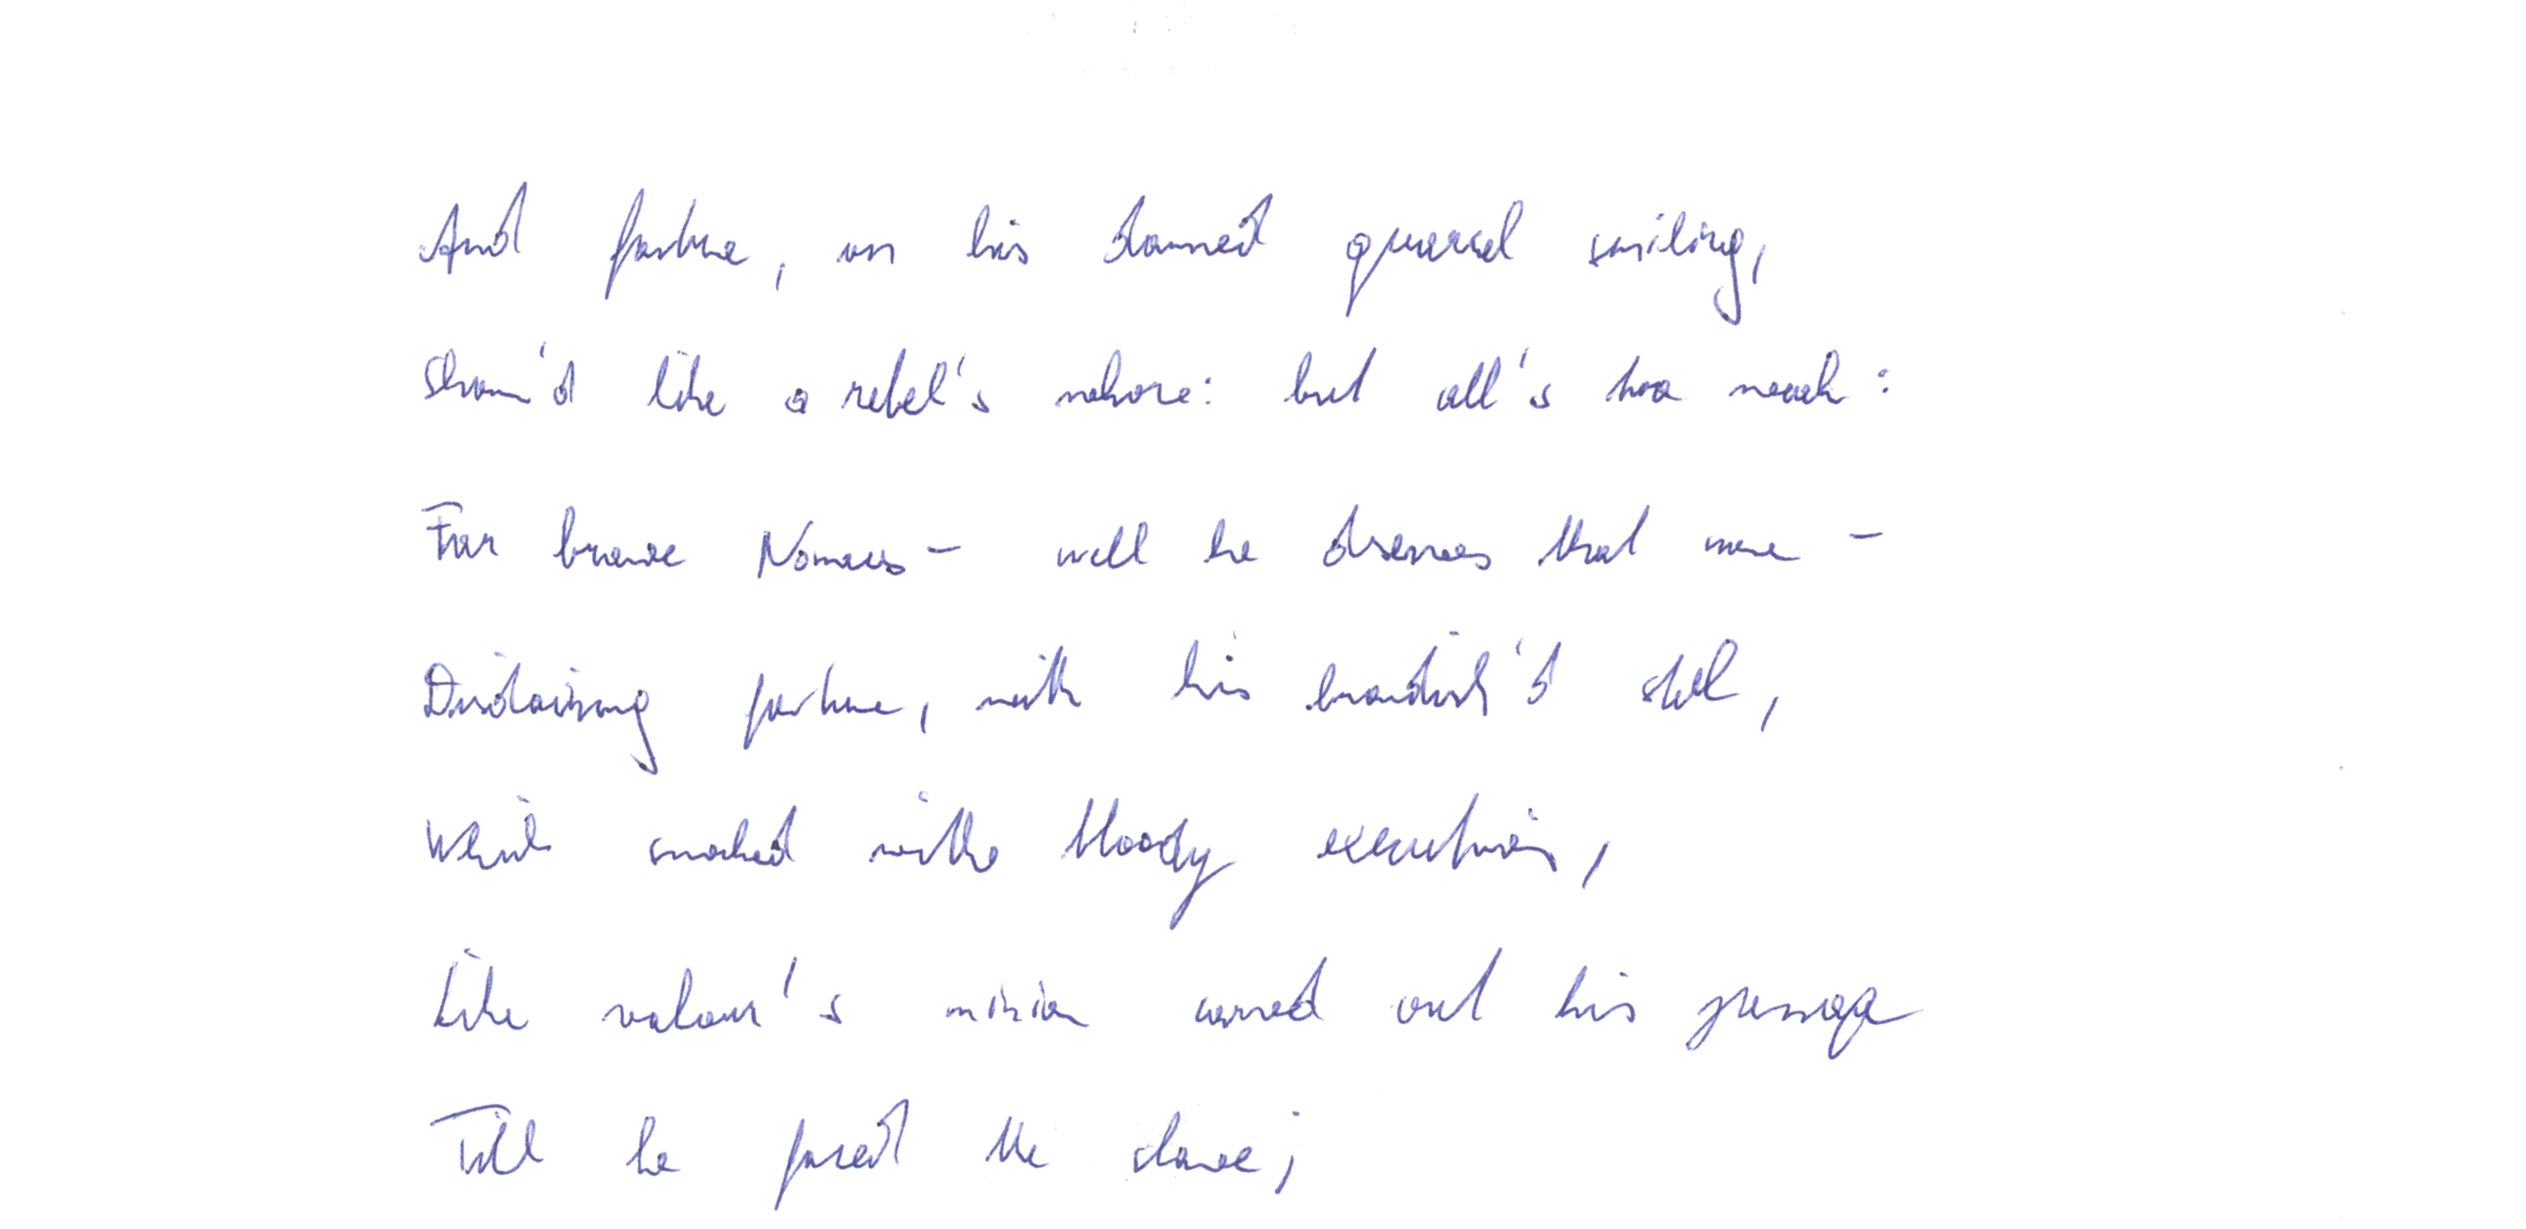 And fortune, on his damned quarrel smiling,
Show'd like a rebel's whore: but all's too weak:
For brave Nomaes - well he deserves that name -
Disdaining fortune, with his brandish'd steel,
Which smoked with bloody execution,
Like valour's minion carved out his passage
Till he faced the slave;